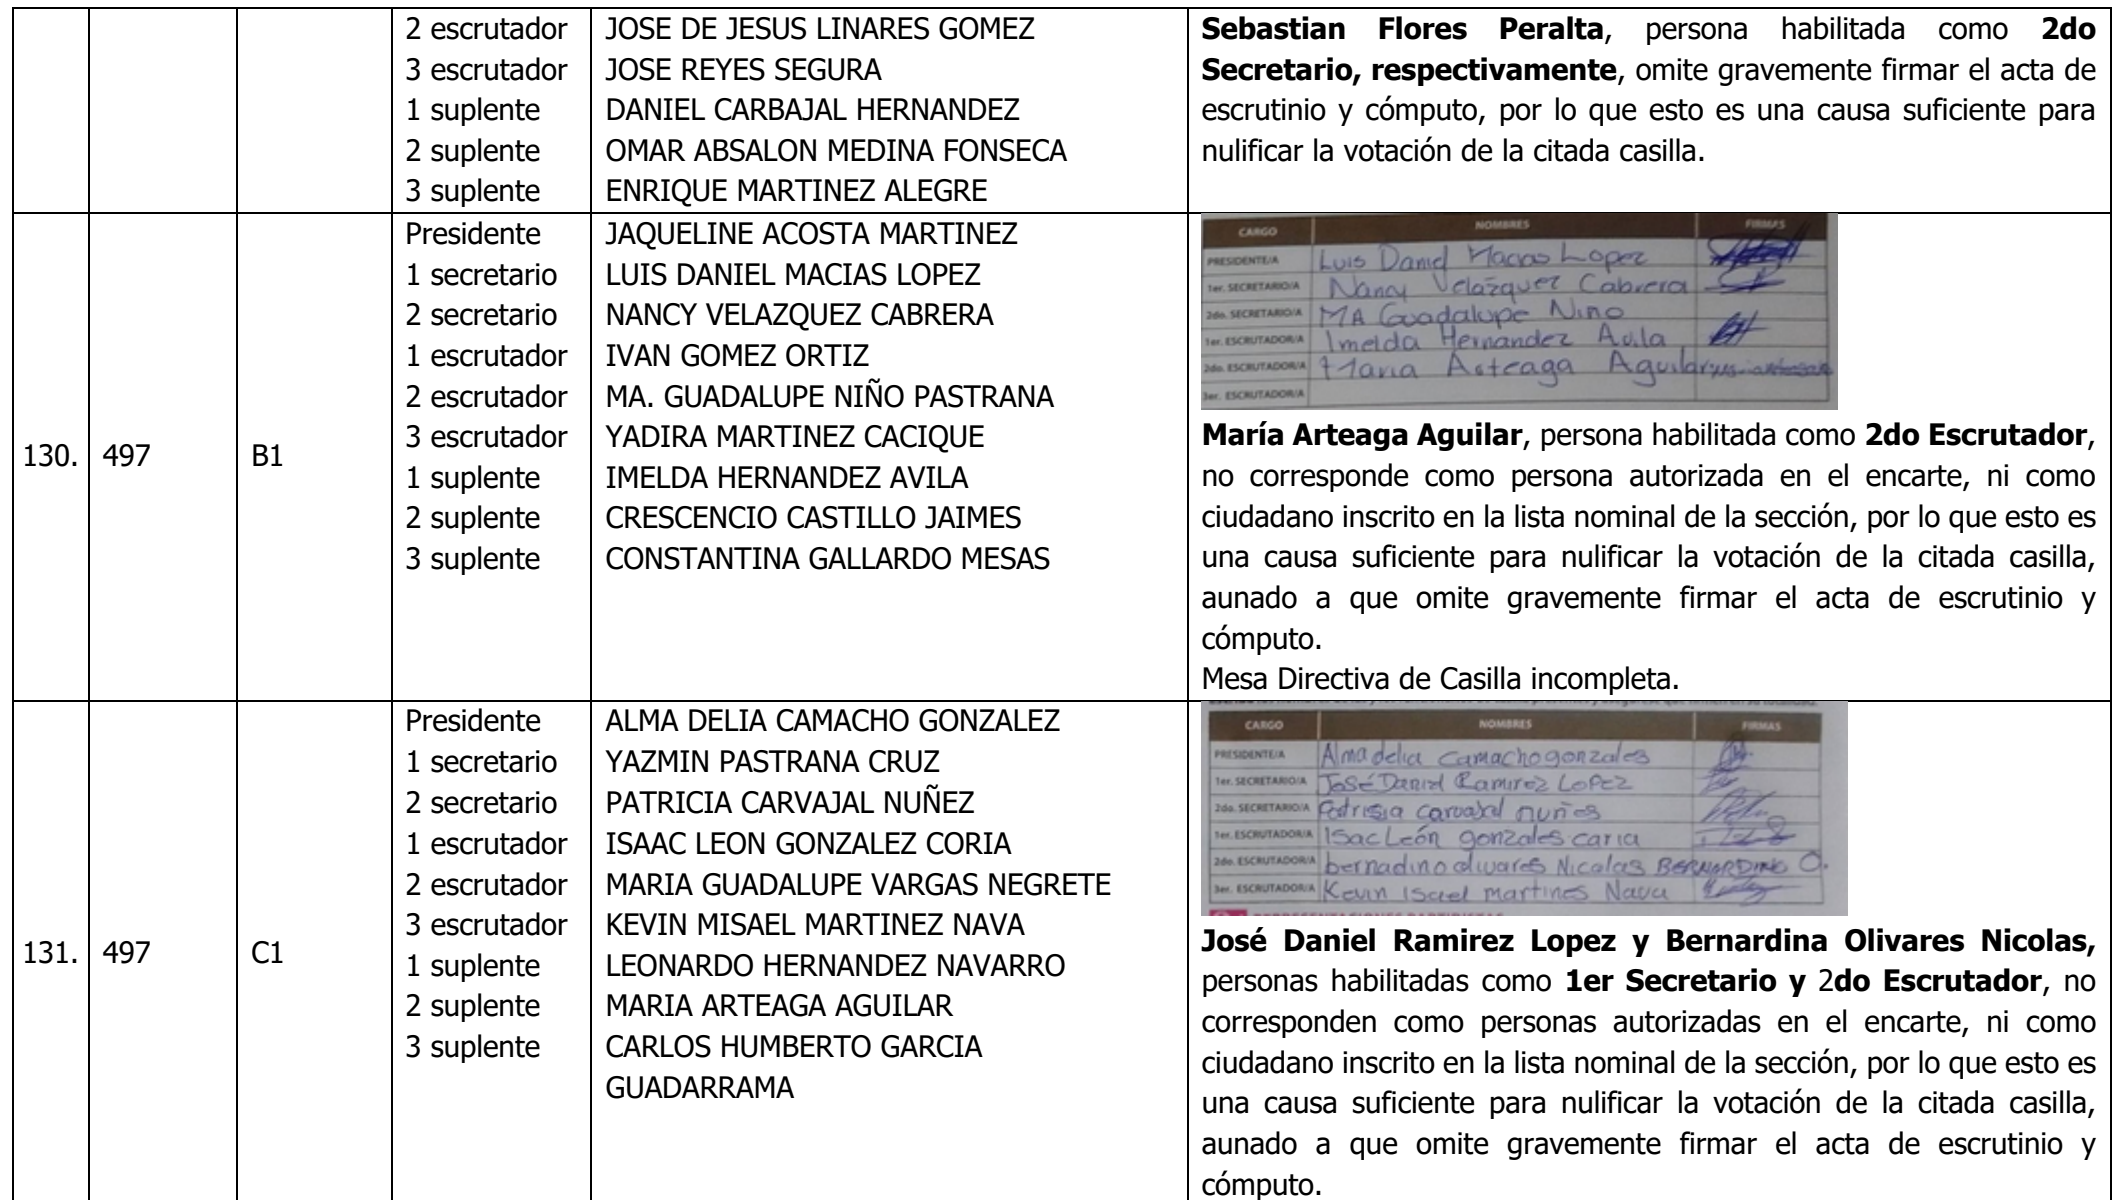 2 escrutador JOSE DE JESUS LINARES GOMEZ
3 escrutador JOSE REYES SEGURA
1 suplente DANIEL CARBAJAL HERNANDEZ
2 suplente OMAR ABSALON MEDINA FONSECA
3 suplente ENRIQUE MARTINEZ ALEGRE
Sebastian Flores Peralta, persona habilitada como 2do
Secretario, respectivamente, omite gravemente firmar el acta de
escrutinio y cómputo, por lo que esto es una causa suficiente para
nulificar la votación de la citada casilla.
130. 497 B1
Presidente JAQUELINE ACOSTA MARTINEZ
1 secretario LUIS DANIEL MACIAS LOPEZ
2 secretario NANCY VELAZQUEZ CABRERA
1 escrutador IVAN GOMEZ ORTIZ
2 escrutador MA. GUADALUPE NIÑO PASTRANA
3 escrutador YADIRA MARTINEZ CACIQUE
1 suplente IMELDA HERNANDEZ AVILA
2 suplente CRESCENCIO CASTILLO JAIMES
3 suplente CONSTANTINA GALLARDO MESAS
CARGO NOMBRES FIRMAS
PRESIDENTE/A Luis Daniel Macias Lopez
1er. SECRETARIO/A Nancy Velázquez Cabrera
2do. SECRETARIO/A MA Guadalupe Nino
1er. ESCRUTADOR/A Imelda Hernandez Avila
2do. ESCRUTADOR/A Maria Arteaga Aguilar
3er. ESCRUTADOR/A
María Arteaga Aguilar, persona habilitada como 2do Escrutador,
no corresponde como persona autorizada en el encarte, ni como
ciudadano inscrito en la lista nominal de la sección, por lo que esto es
una causa suficiente para nulificar la votación de la citada casilla,
aunado a que omite gravemente firmar el acta de escrutinio y
cómputo.
Mesa Directiva de Casilla incompleta.
131. 497 C1
Presidente ALMA DELIA CAMACHO GONZALEZ
1 secretario YAZMIN PASTRANA CRUZ
2 secretario PATRICIA CARVAJAL NUÑEZ
1 escrutador ISAAC LEON GONZALEZ CORIA
2 escrutador MARIA GUADALUPE VARGAS NEGRETE
3 escrutador KEVIN MISAEL MARTINEZ NAVA
1 suplente LEONARDO HERNANDEZ NAVARRO
2 suplente MARIA ARTEAGA AGUILAR
3 suplente CARLOS HUMBERTO GARCIA
GUADARRAMA
CARGO NOMBRES FIRMAS
PRESIDENTE/A Alma delia camacho gonzales
1er. SECRETARIO/A José Daniel Ramirez LoPez
2do. SECRETARIO/A Patrisia carvajal nuñes
1er. ESCRUTADOR/A Isac León gonzales caria
2do. ESCRUTADOR/A bernadino olivares Nicolas BERNARDINO O.
3er. ESCRUTADOR/A Kevin Isael martines Nava
José Daniel Ramirez Lopez y Bernardina Olivares Nicolas,
personas habilitadas como 1er Secretario y 2do Escrutador, no
corresponden como personas autorizadas en el encarte, ni como
ciudadano inscrito en la lista nominal de la sección, por lo que esto es
una causa suficiente para nulificar la votación de la citada casilla,
aunado a que omite gravemente firmar el acta de escrutinio y
cómputo.